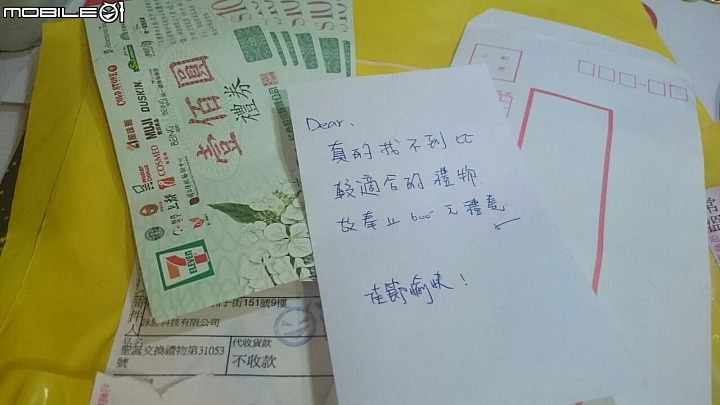 MOBILE01
$10
壹佰圓
禮券
COLD STONE
MUJI
DUSKIN
COSMED
BEING
7
ELEVEN
Dear.
真的找不到比
較適合的禮物
故奉上 600 元禮卷
佳節愉快!
寄件人
街151號9樓
科技有限公司
品名
聖誕交換禮物第31053
號
代收貨款
不收款